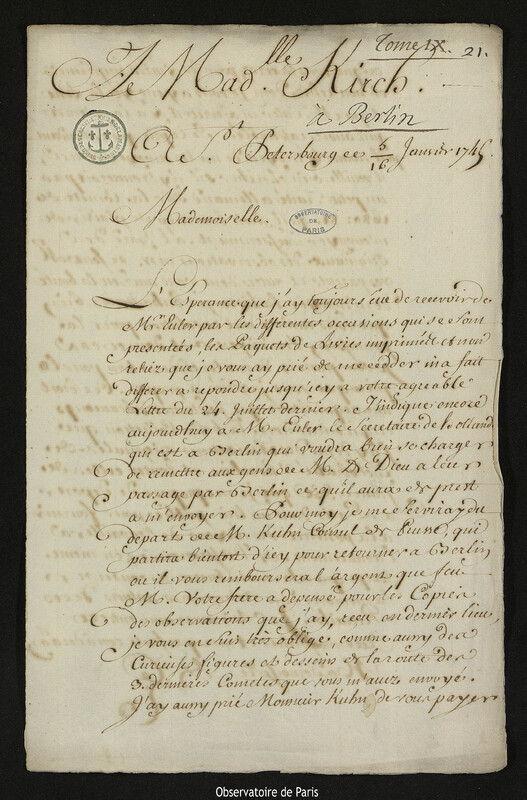 Tome IX. 21.
A Mad.lle Kirch.
à Berlin
A St. Petersbourg ce 5/16 Janvier 1745.
Mademoiselle.
OBSERVATOIRE DE PARIS
L'Esperance que j'ay toujours eue de recevoir de
Mr. Euler par les differentes occasions qui se sont
presentées, les Paquets de Livres imprimés et non
reliez que je vous ay prié de me ceder m'a fait
differer a repondre jusqu'icy a votre agreable
Lettre du 24. Juillet dernier. J'indique encore
aujourdhuy a M. Euler le Secretaire de Holland
qui est a Berlin qui voudra bien se charger
de remettre aux gens de M. D Dieu a leur
passage par Berlin ce qu'il aura de prest
a m'envoyer. Pour moy je me serviray du
depart de M. Kuhn Consul de Prusse, qui
partira bientost d'icy pour retourner a Berlin
ou il vous remboursera l'argent que feu
M. Votre frere a depensé pour les Copies
des observations que j'ay recu en dernier lieu,
je vous en suis tres obligé, comme aussy des
Curieuses figures et desseins de la route des
3. dernieres Cometes que vous m'avez envoyé.
J'ay aussy prié Monsieur Kuhn de vous payer
Observatoire de Paris